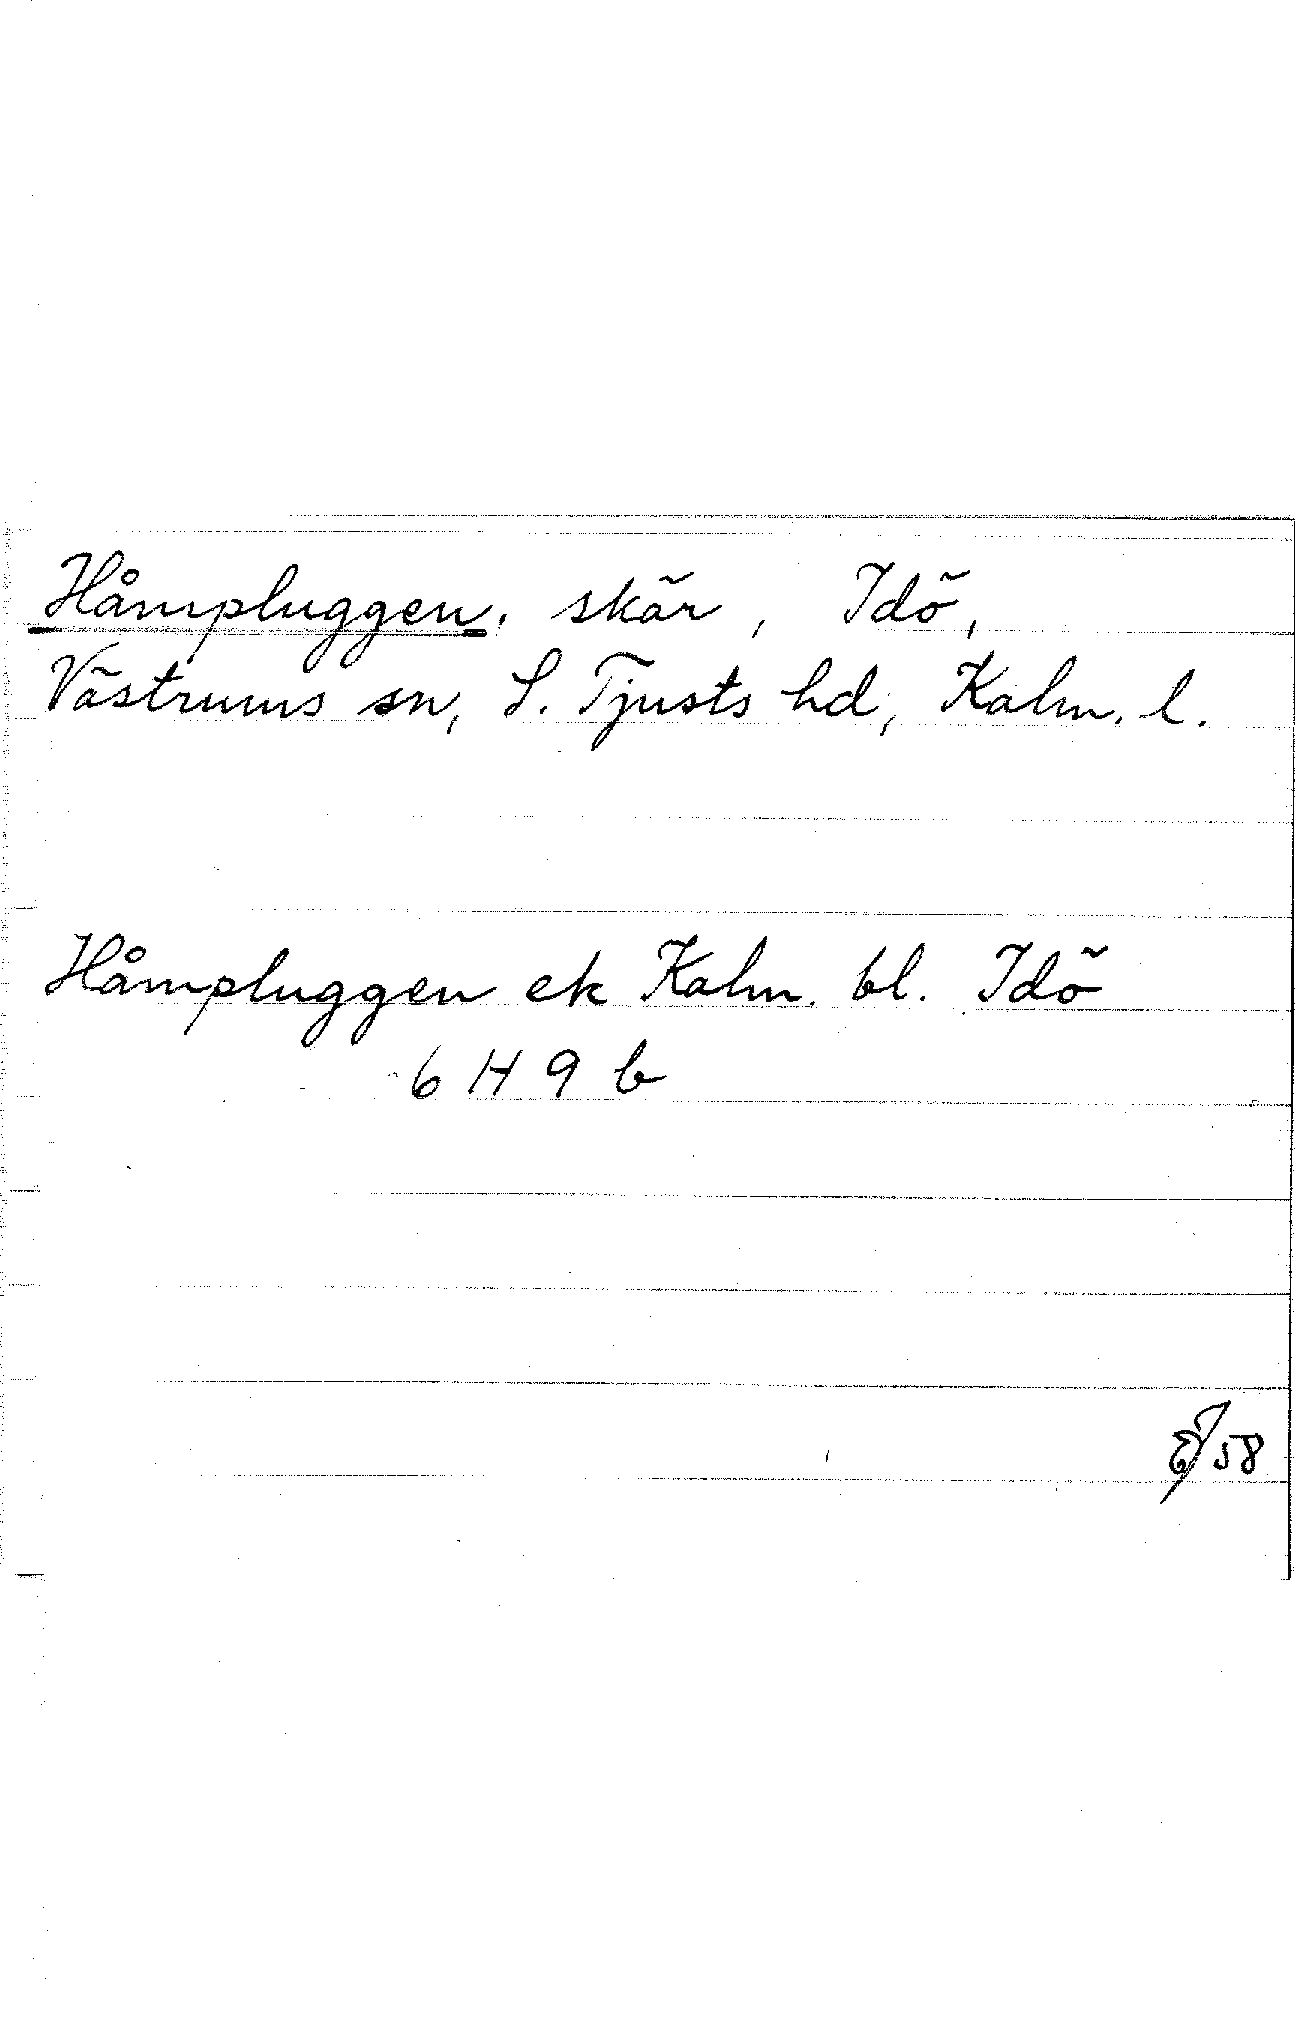 Håmpluggen, skär, Idö,
Västrums sn, S. Tjusts hd, Kalm. l.
Håmpluggen ek Kalm. bl. Idö
6 H 9 b
58